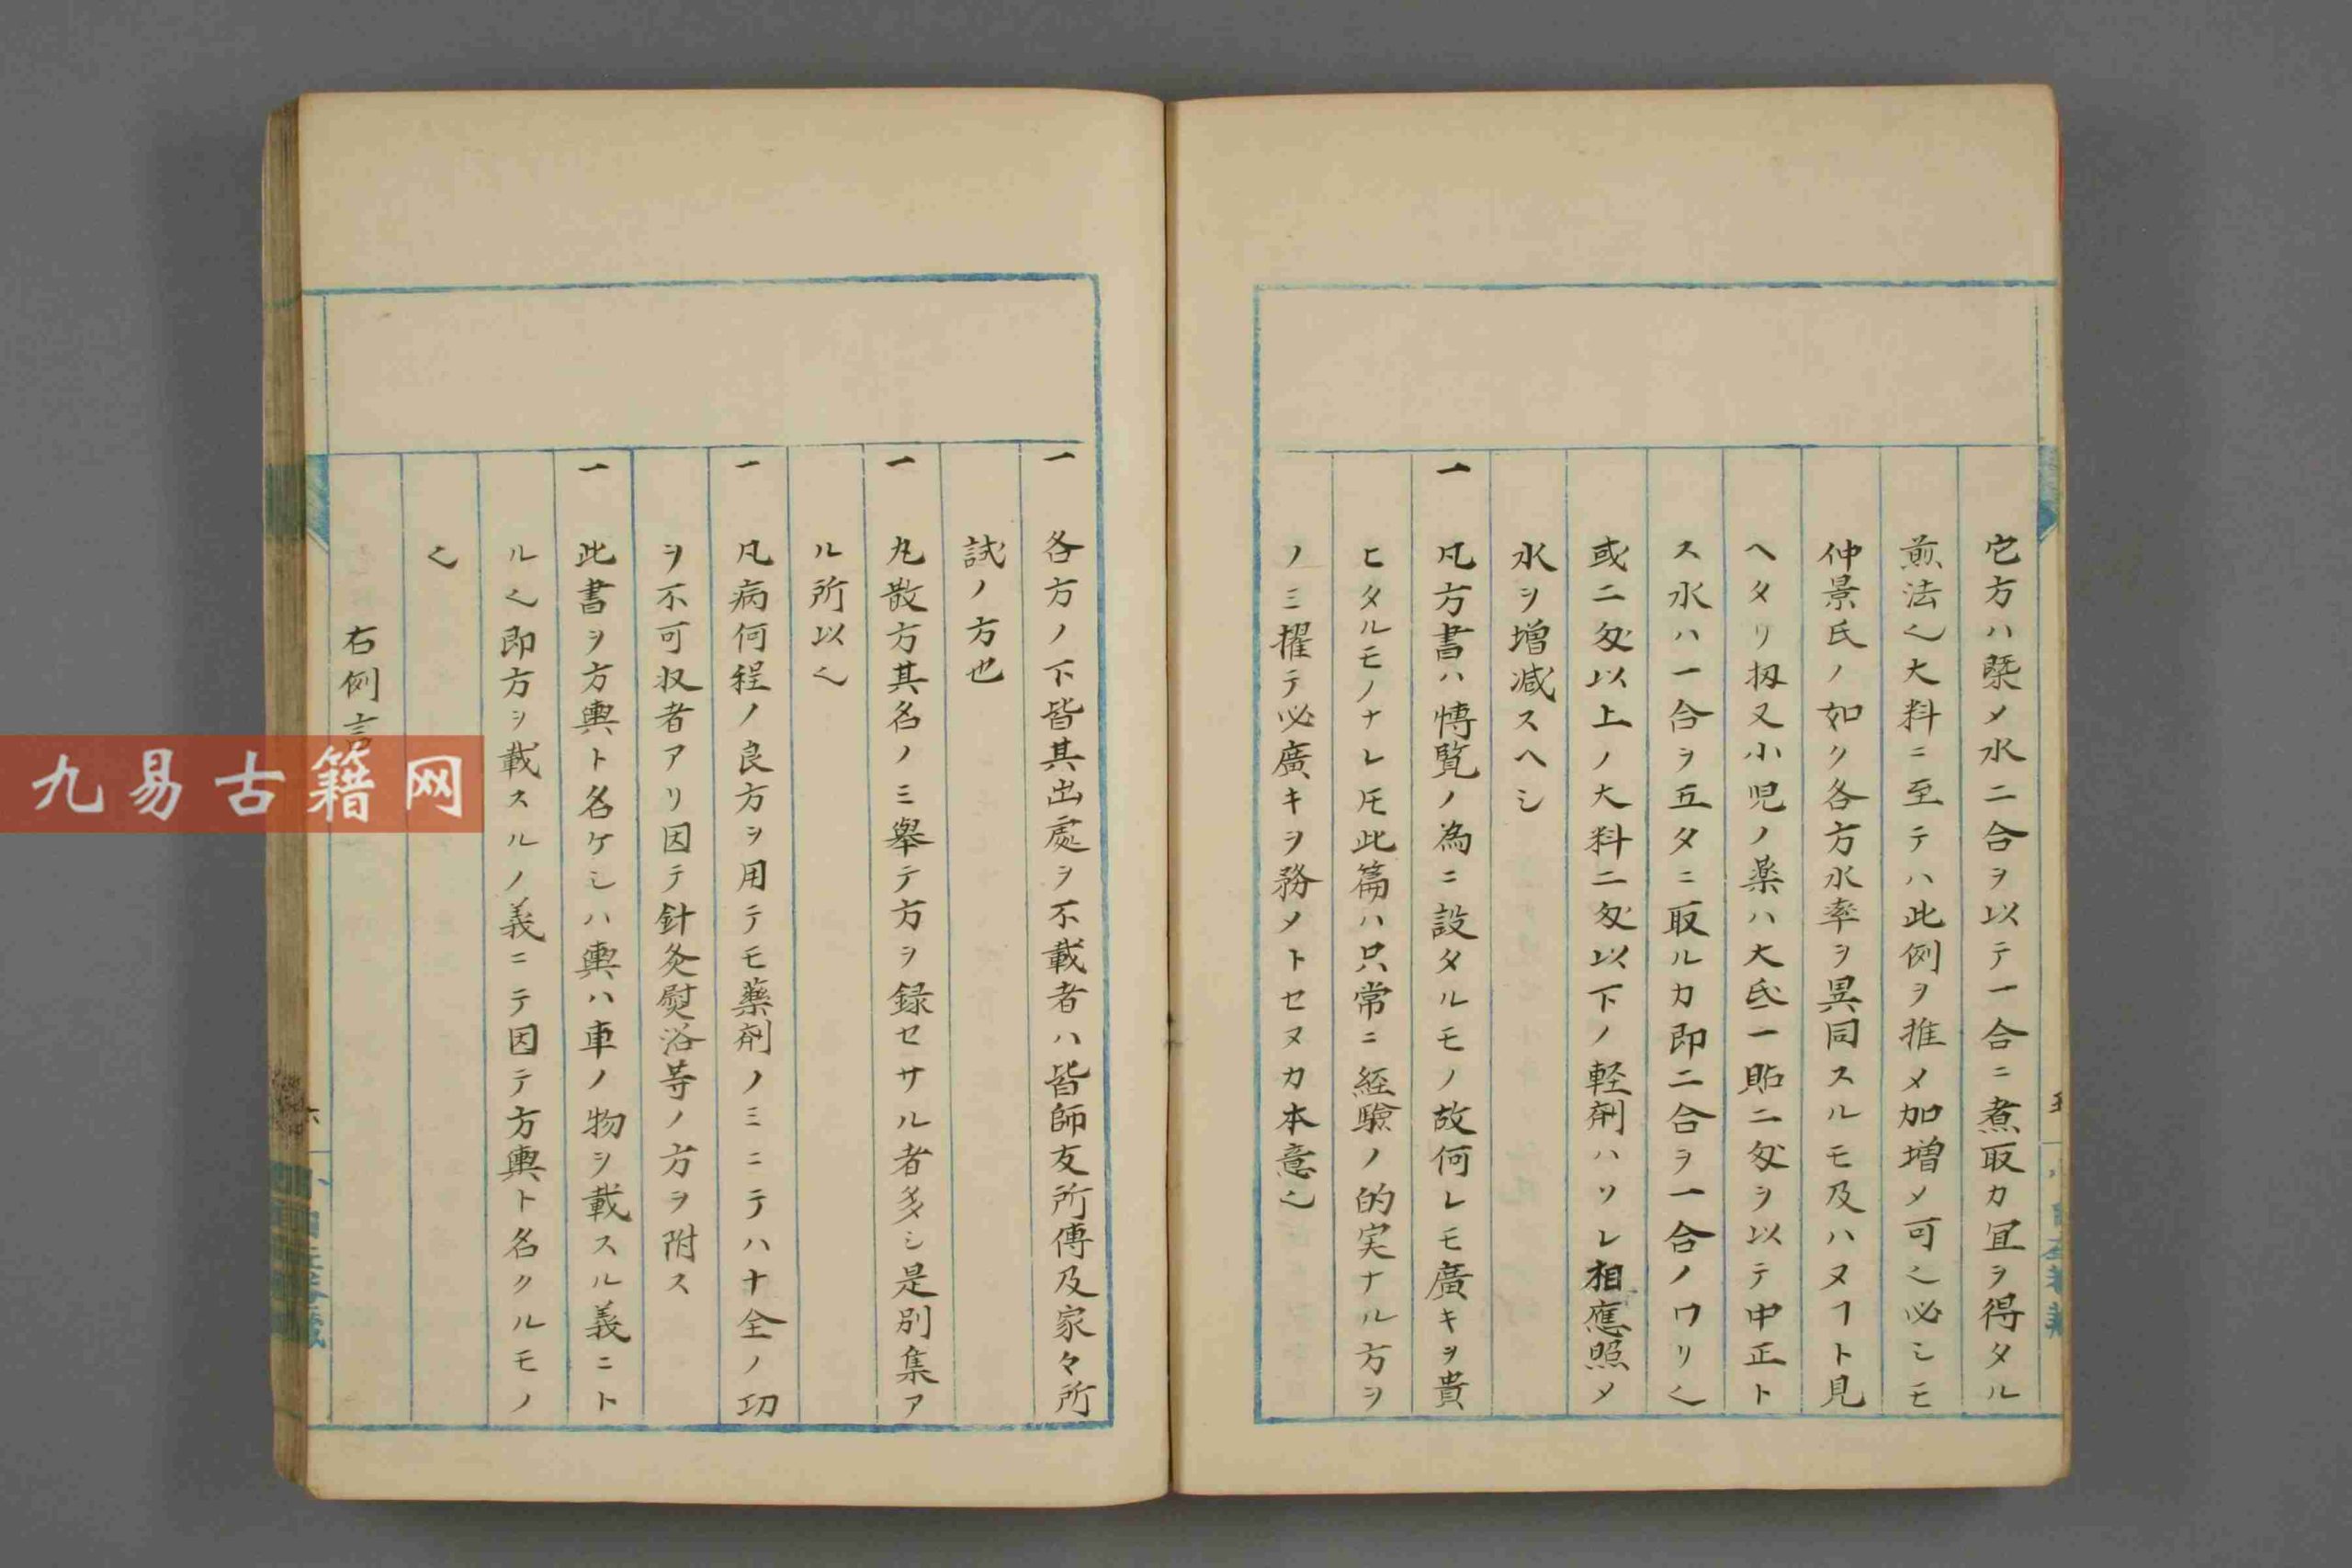 它方ハ槩メ水二合ヲ以テ一合ニ煮取カ宜ヲ得タル
煎法也大料ニ至テハ此例ヲ推メ加増メ可也必シモ
仲景氏ノ如ク各方水率ヲ異同スルモ及ハヌヿト見
ヘタリ扨又小児ノ薬ハ大氐一貼二匁ヲ以テ中正ト
ス水ハ一合ヲ五夕ニ取ルカ即二合ヲ一合ノワリ也
或二匁以上ノ大料二匁以下ノ軽剤ハソレ相應照メ
水ヲ増减スヘシ
一 凡方書ハ愽覧ノ為ニ設タルモノ故何レモ廣キヲ貴
ヒタルモノナレ𪜈此篇ハ只常ニ経驗ノ的実ナル方ヲ
ノミ擢テ必廣キヲ務メトセヌカ本意也
一 各方ノ下皆其出處ヲ不載者ハ皆師友所傳及家々所
試ノ方也
一 丸散方其名ノミ舉テ方ヲ録セサル者多シ是別集ア
ル所以也
一 凡病何程ノ良方ヲ用テモ藥剤ノミニテハ十全ノ功
ヲ不可収者アリ因テ針灸熨浴等ノ方ヲ附ス
一 此書ヲ方輿ト名ケシハ輿ハ車ノ物ヲ載スル義ニト
ル也即方ヲ載スルノ義ニテ因テ方輿ト名クルモノ
也
右例言
九易古籍网